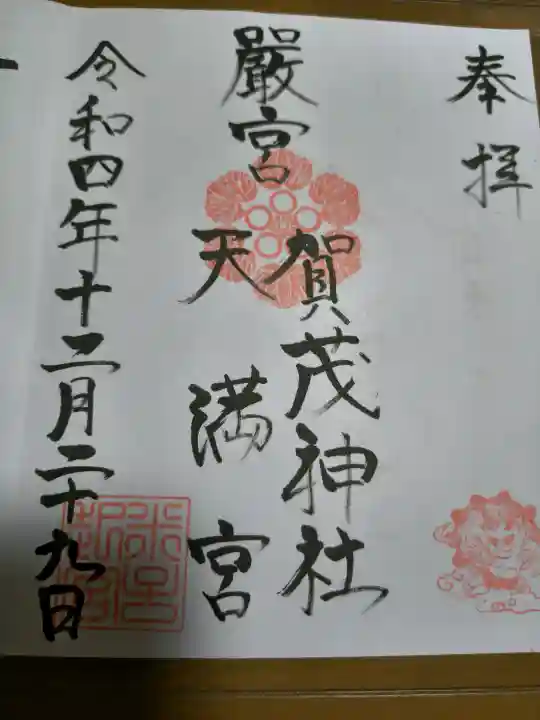 奉拝
嚴宮
賀茂神社
天満宮
令和四年十二月二十九日